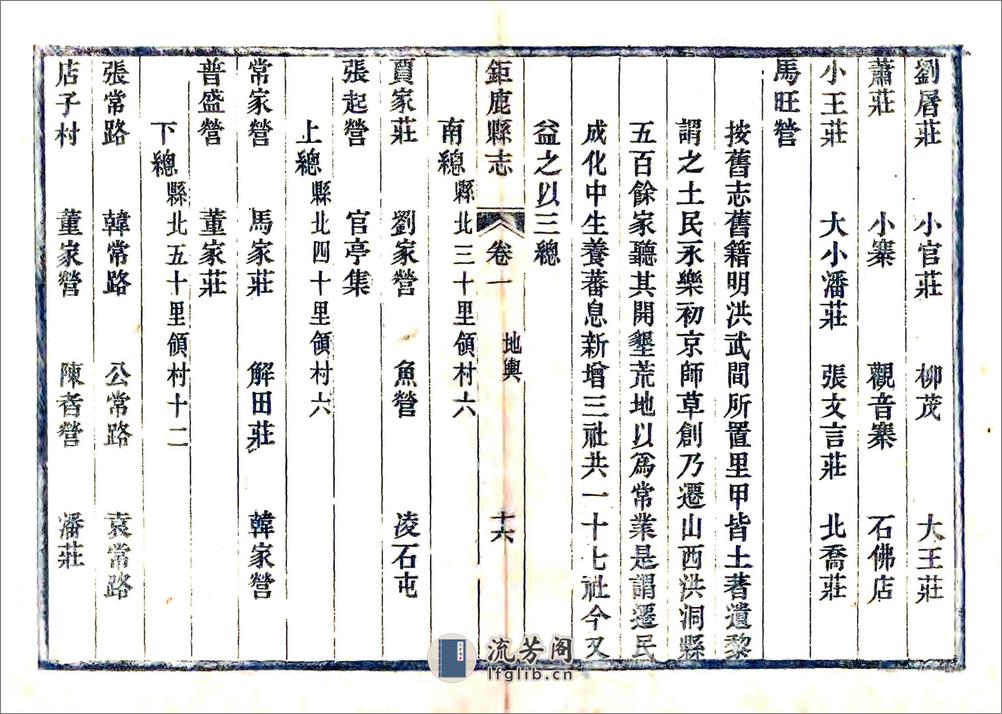 劉屠莊 小官莊 柳茂 大王莊
蕭莊 小寨 觀音寨 石佛店
小王莊 大小潘莊 張文言莊 北喬莊
馬旺營
按舊志舊籍明洪武間所置里甲皆土著遺黎
謂之土民永樂初京師草創乃遷山西洪洞縣
五百餘家聽其開墾荒地以爲常業是謂遷民
成化中生養蕃息新增三社共一十七社今又
益之以三總
鉅鹿縣志 卷一 地輿 十六
南總縣北三十里領村六
賈家莊 劉家營 魚營 凌石屯
張起營 官亭集
上總縣北四十里領村六
常家營 馬家莊 解田莊 韓家營
普盛營 董家莊
下總縣北五十里領村十二
張常路 韓常路 公常路 袁常路
店子村 董家營 陳者營 潘莊
流芳阁
lfglib.cn